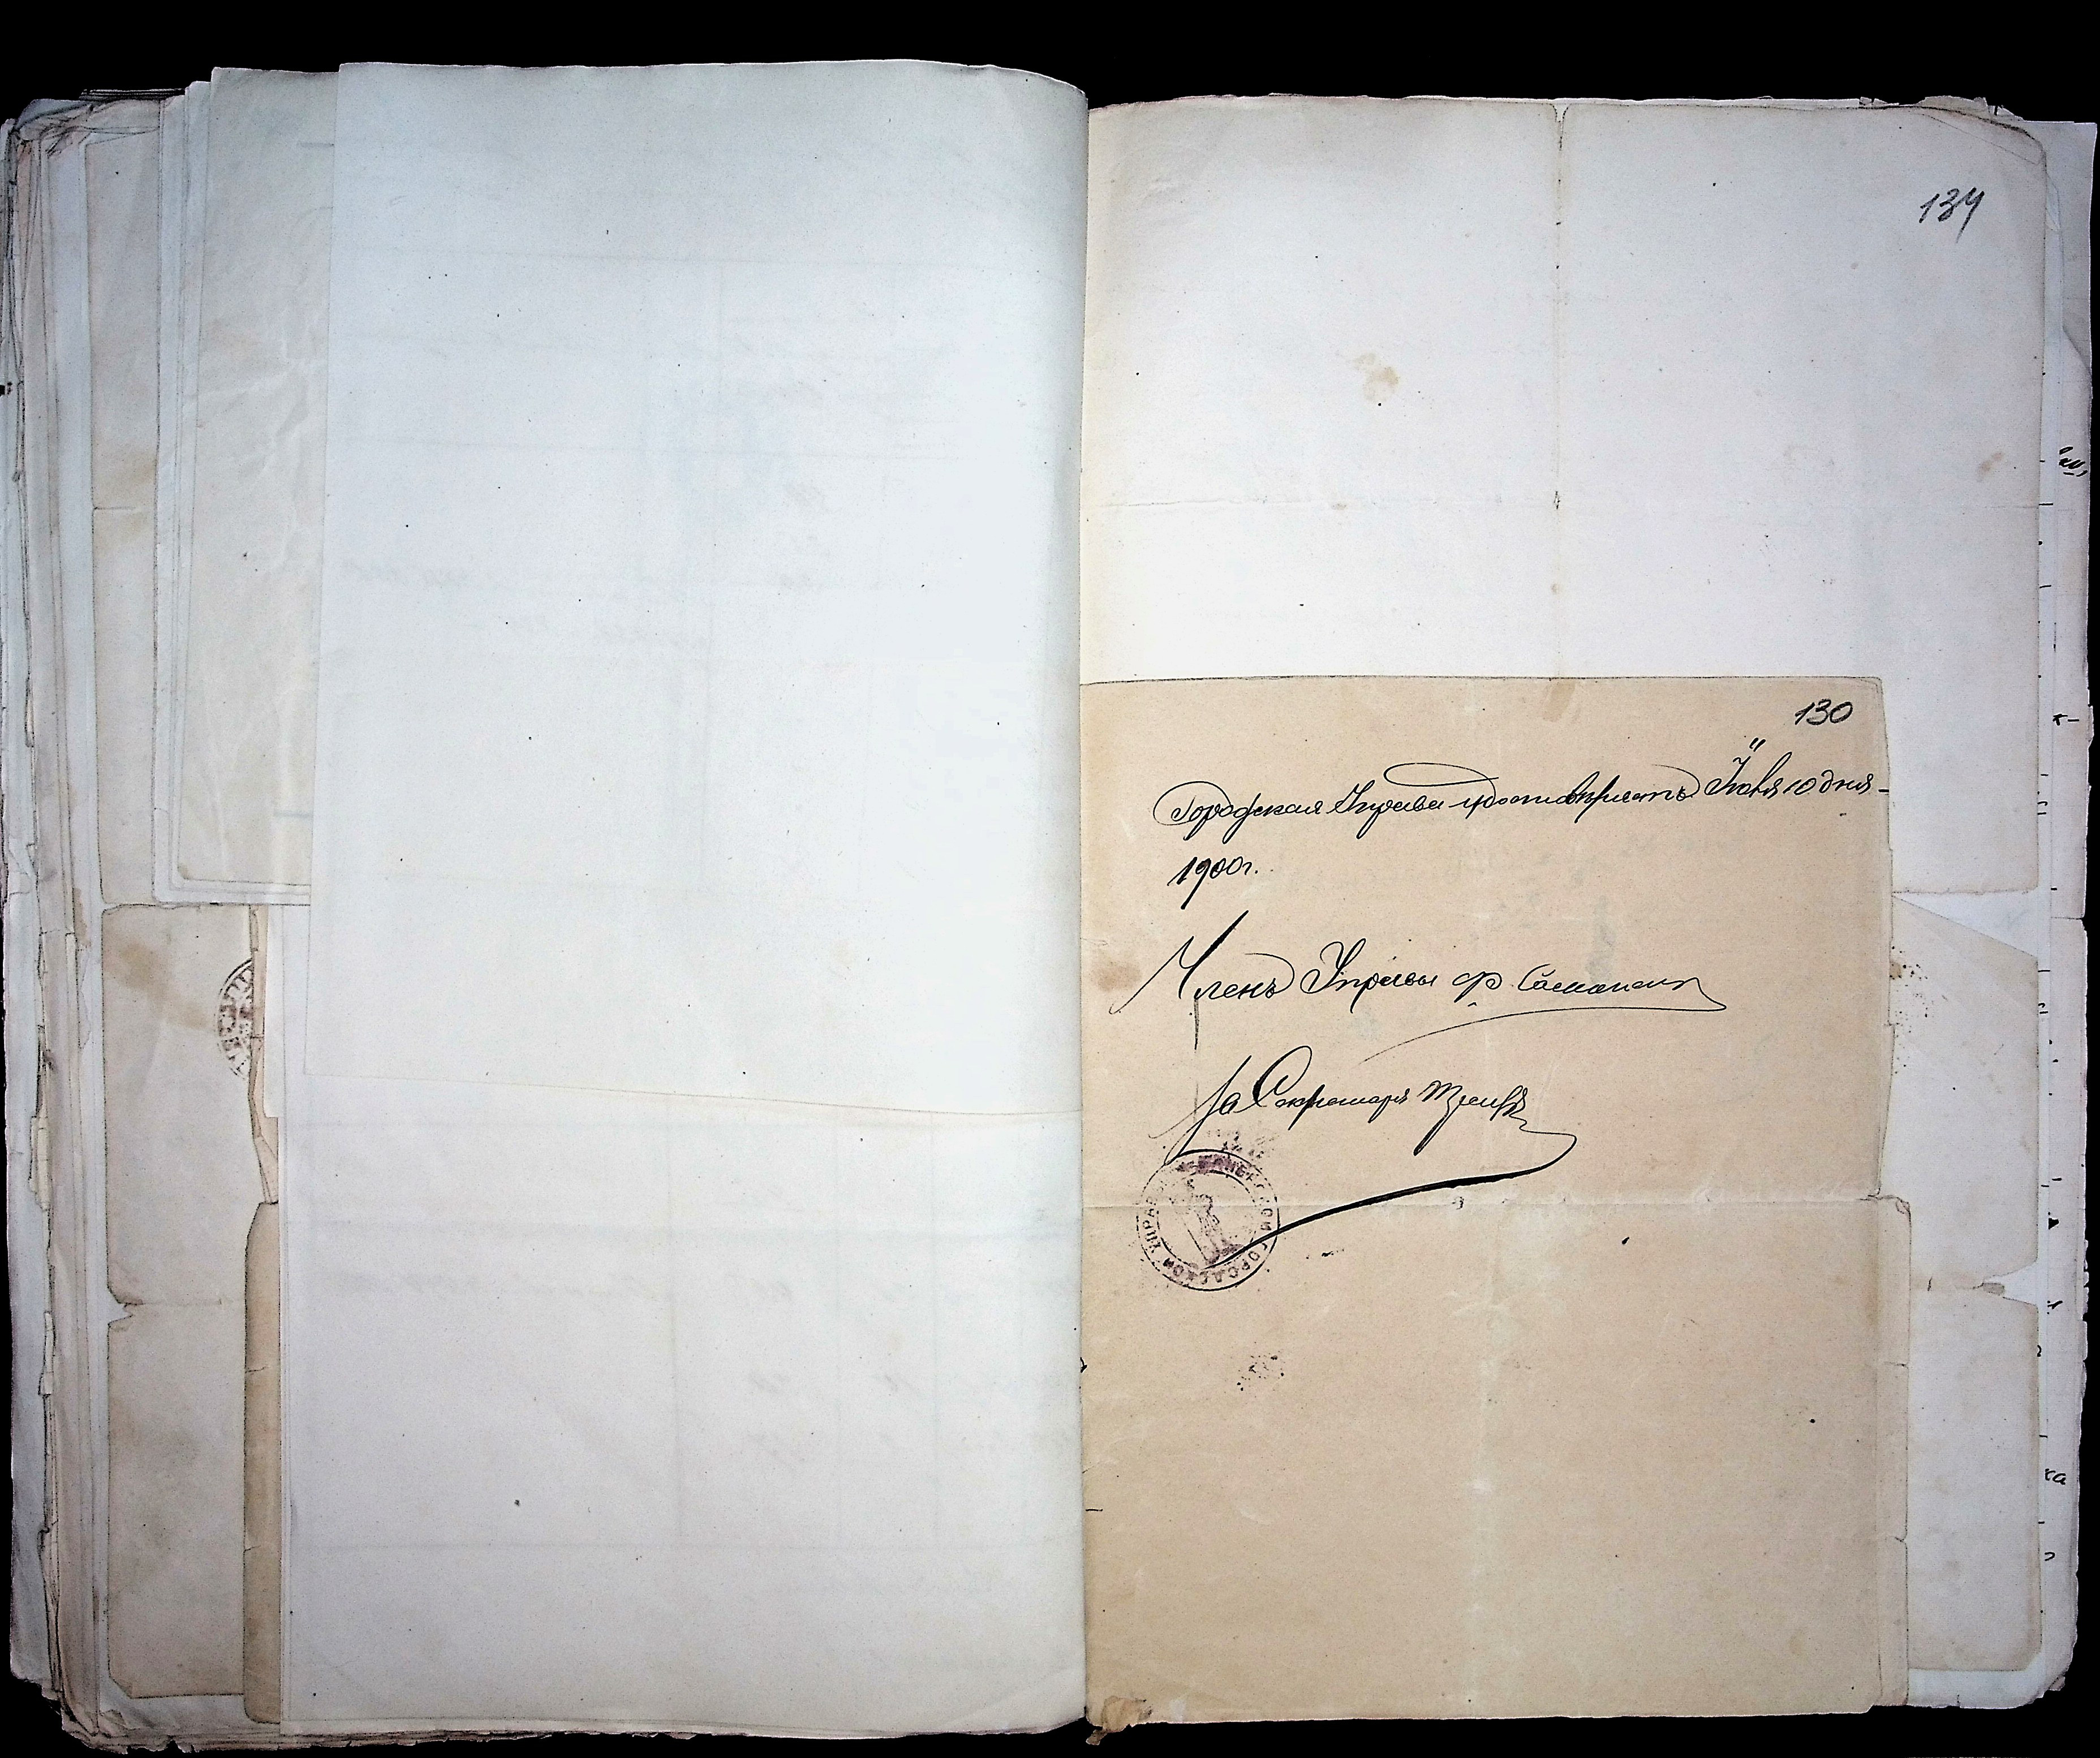 134
130
Городская Управа удостовѣряетъ Іюля 10 дня
1900г.
Членъ Управы
За Секретаря
ГОРОДСКОЙ УПРАВЫ